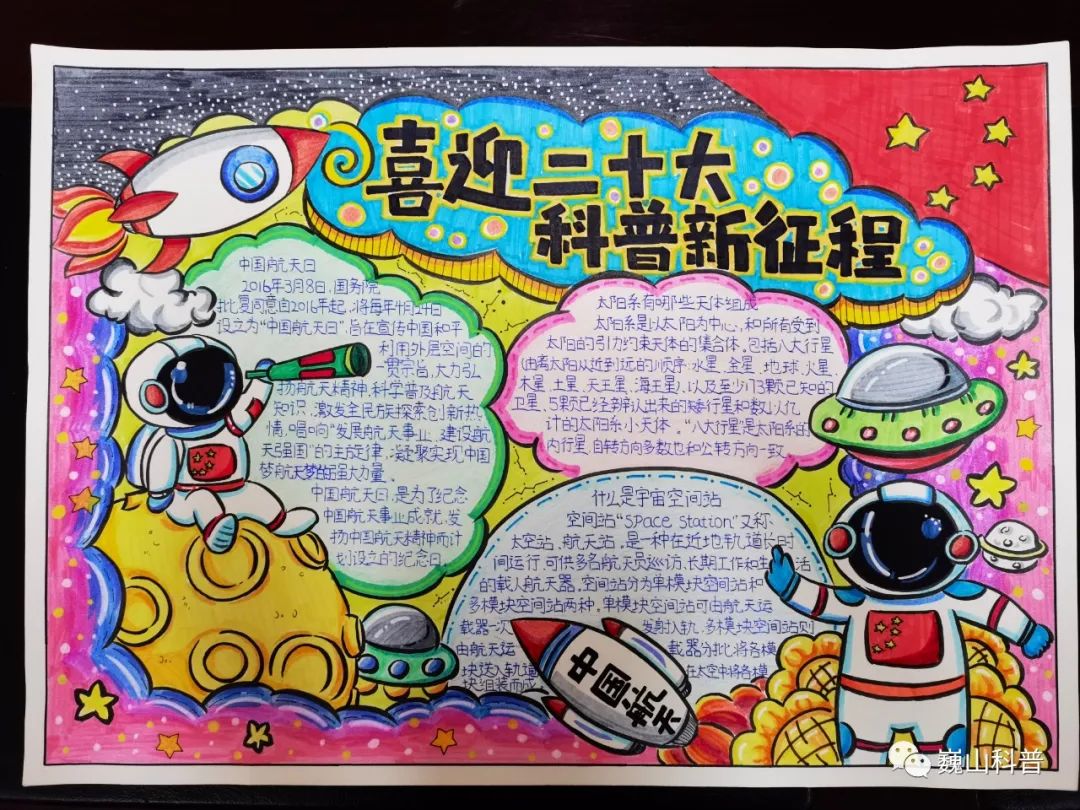 喜迎二十大
科普新征程
中国航天日
2016年3月8日,国务院
批复同意自2016年起,将每年4月24日
设立为"中国航天日",旨在宣传中国和平
利用外层空间的
一贯宗旨,大力弘
扬航天精神,科学普及航天
知识,激发全民族探索创新热
情,唱响"发展航天事业,建设航
天强国"的主旋律,凝聚实现中国
梦航天梦的强大力量。
中国航天日,是为了纪念
中国航天事业成就,发
扬中国航天精神而计
划设立的纪念日。
太阳系有哪些天体组成
太阳系是以太阳为中心,和所有受到
太阳的引力约束天体的集合体。包括八大行星
(由离太阳从近到远的顺序:水星、金星、地球、火星、
木星、土星、天王星、海王星)、以及至少173颗已知的
卫星、5颗已经辨认出来的矮行星和数以亿
计的太阳系小天体。"八大行星"是太阳系的
内行星,自转方向多数也和公转方向一致。
什么是宇宙空间站
空间站"Space Station"又称
太空站、航天站。是一种在近地轨道长时
间运行,可供多名航天员巡访、长期工作和生活
的载人航天器。空间站分为单模块空间站和
多模块空间站两种。单模块空间站可由航天运
载器一次发射入轨,多模块空间站则
由航天运载器分批将各模
块送入轨道在太空中将各模
块组装而成
中国航天
巍山科普